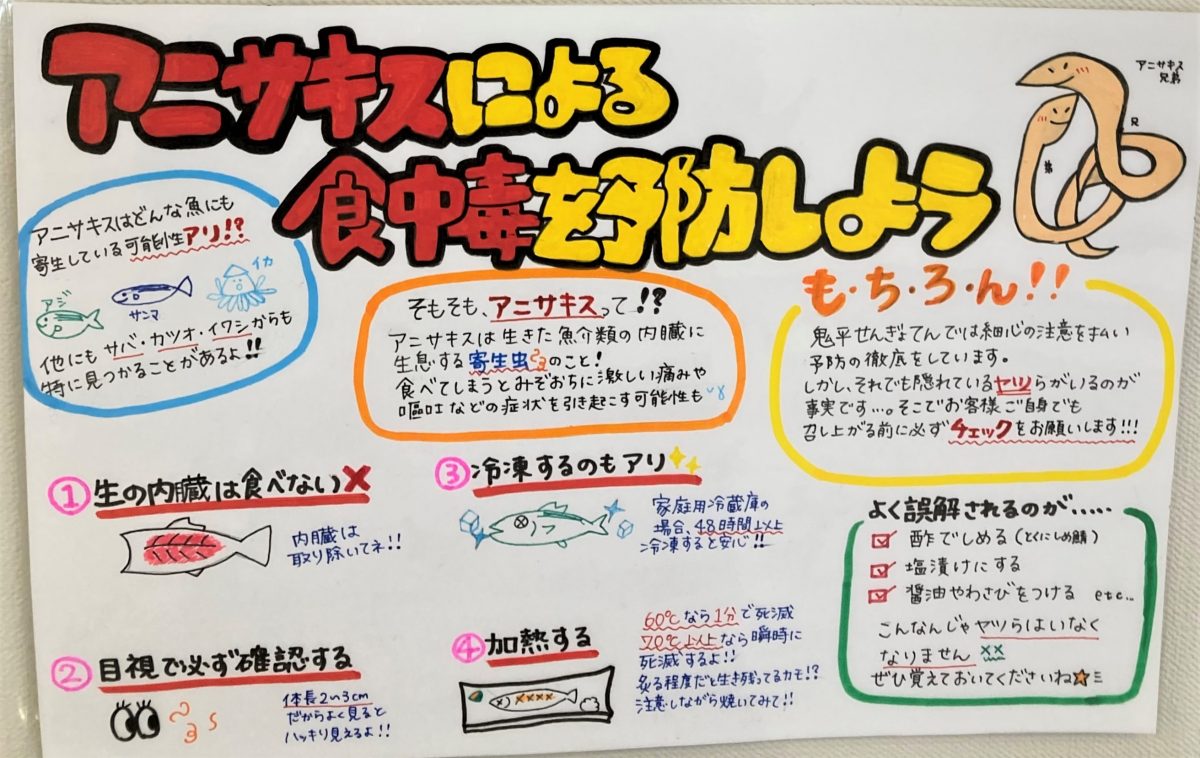 アニサキスによる
食中毒を予防しよう
アニサキス
兄弟
兄
弟
アニサキスはどんな魚にも
寄生している可能性アリ!?
アジ
サンマ
イカ
他にも サバ・カツオ・イワシからも
特に見つかることがあるよ!!
そもそも、アニサキスって!?
アニサキスは生きた魚介類の内臓に
生息する寄生虫のこと!
食べてしまうとみぞおちに激しい痛みや
嘔吐などの症状を引き起こす可能性も
も・ち・ろ・ん!!
鬼平せんぎょてんでは細心の注意をはらい
予防の徹底をしています。
しかし、それでも隠れているヤツらがいるのが
事実です…。そこでお客様ご自身でも
召し上がる前に必ずチェックをお願いします!!!
①生の内臓は食べない✕
内臓は
取り除いてネ!!
②目視で必ず確認する
体長2〜3cm
だからよく見ると
ハッキリ見えるよ!!
③冷凍するのもアリ
家庭用冷蔵庫の
場合、48時間以上
冷凍すると安心!!
④加熱する
60℃なら1分で死滅
70℃以上なら瞬時に
死滅するよ!!
炙る程度だと生き残ってるカモ!?
注意しながら焼いてみて!!
よく誤解されるのが.....
☑ 酢でしめる(とくにしめ鯖)
☑ 塩漬けにする
☑ 醤油やわさびをつける etc...
こんなんじゃヤツらはいなく
なりません
ぜひ覚えておいてくださいね☆ミ